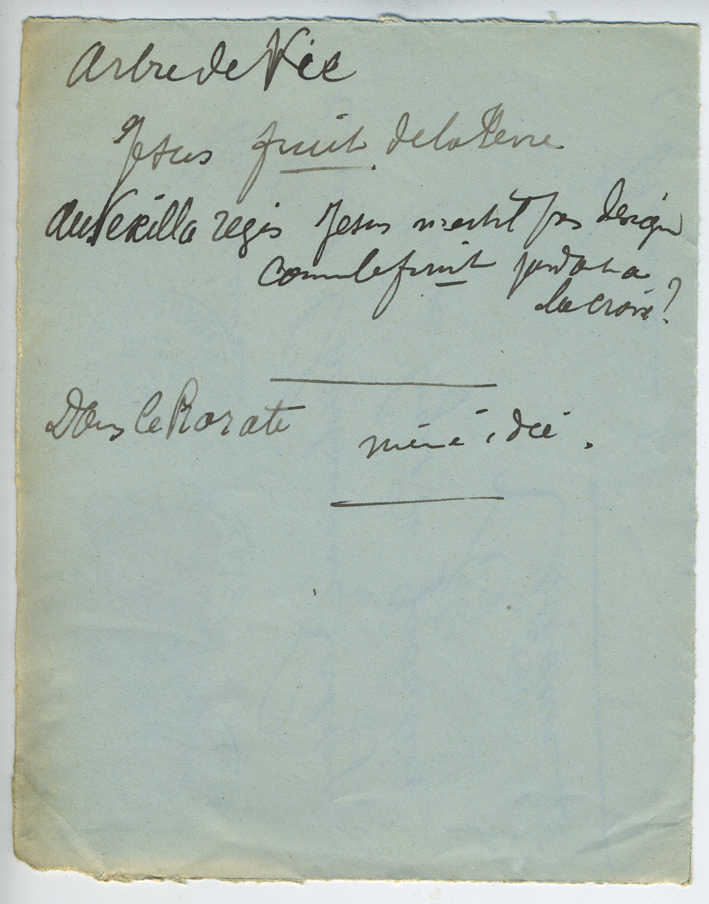 Arbre de Vie
Jesus fruit de la Terre
au Vexilla regis Jesus n'est il pas designé
comme le fruit pendant a
la croix?
Dans le Rorate même idée.